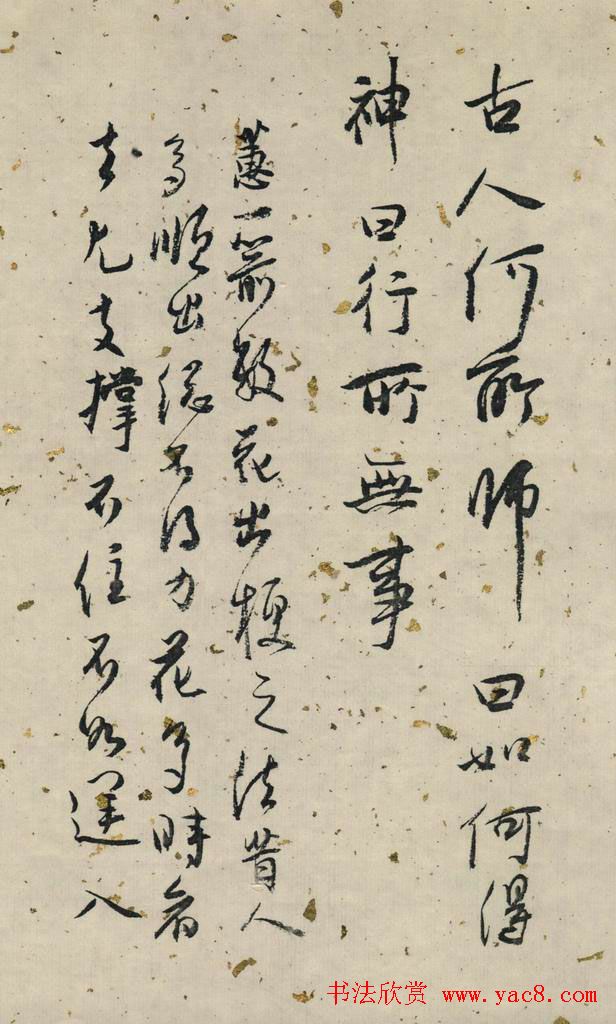 古人何所師曰如何得
神曰行所無事
蕙一箭數花出梗之法昔人
多順出總不得力花多時看
去尤支撐不住不如逆入
书法欣赏 www.yac8.com